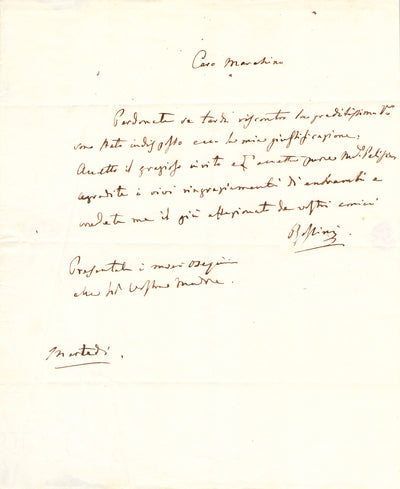 Caro Marchino
Perdonate se tardi riscontro la graditissima Vra
sono stato indisposto ecco la mia giustificazione,
Accetto il grazioso invito e l'accetta pure Md. Pelissier
aggradite i vivi ringraziamenti di entrambi e
credete me il più affezionato de vostri amici
Rossini.
Presentate i miei ossequi
alla Sa. vostra Madre.
Martedì.